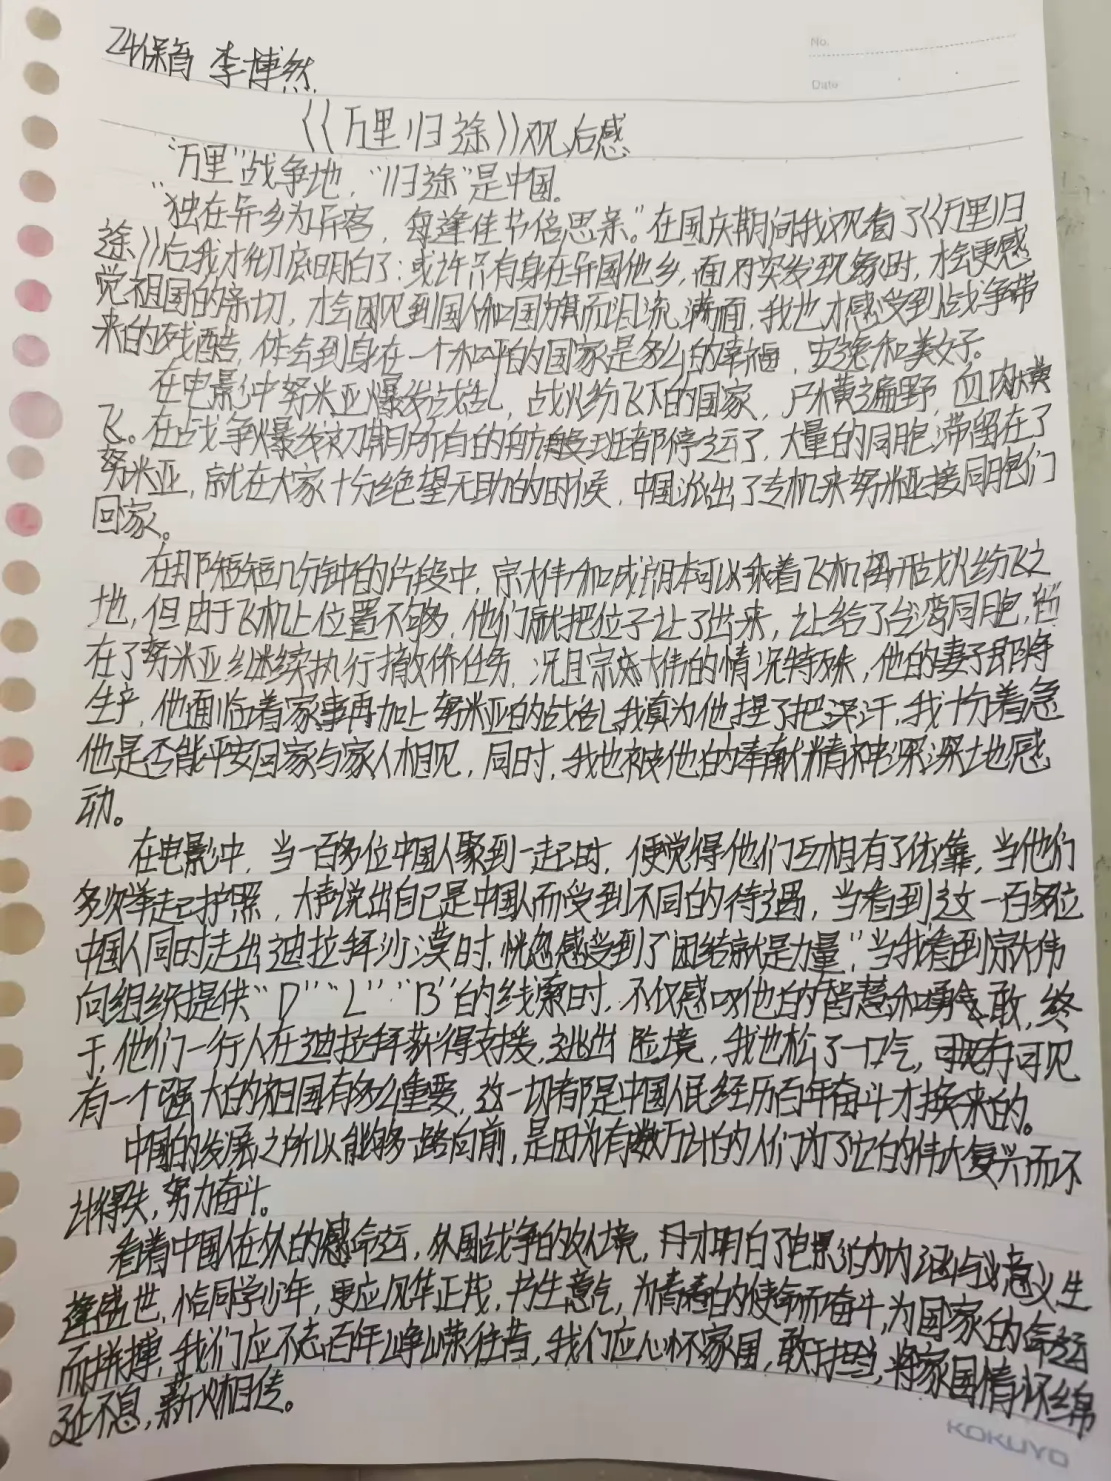 24保育 李博然
No.
Date
《万里归途》观后感
"万里"战争地，"归途"是中国。
"独在异乡为异客，每逢佳节倍思亲。"在国庆期间我观看了《万里归
途》后我才彻底明白了：或许只有身在异国他乡，面对突发现象时，才会更感
觉祖国的亲切，才会因见到国人和国旗而泪流满面，我也才感受到战争带
来的残酷，体会到身在一个和平的国家是多么的幸福，安逸和美好。
在电影中努米亚爆发战乱，战火纷飞下的国家，尸横遍野，血肉横
飞。在战争爆发初期所有的航班都停运了，大量的同胞滞留在了
努米亚，就在大家十分绝望无助的时候，中国派出了专机来努米亚接同胞们
回家。
在那短短几分钟的片段中，宗大伟和成朗本可以乘着飞机离开战火纷飞之
地，但由于飞机上位置不够，他们就把位子让了出来，让给了台湾同胞，留
在了努米亚继续执行撤侨任务，况且宗大伟的情况特殊，他的妻子即将
生产，他面临着家事再加上努米亚的战乱我真为他捏了把深汗，我十分着急
他是否能平安回家与家人相见，同时，我也被他的奉献精神深深地感
动。
在电影中，当一百多位中国人聚到一起时，便觉得他们互相有了依靠，当他们
多次举起护照，大声说出自己是中国人而受到不同的待遇，当看到这一百多位
中国人同时走出迪拉拜沙漠时，恍忽感受到了"团结就是力量"当我看到宗大伟
向组织提供"D""L""B"的线索时，不仅感叹他的智慧和勇敢，终
于，他们一行人在迪拉拜获得支援，逃出险境，我也松了一口气，可见
有一个强大的祖国有多么重要，这一切都是中国人民经历百年奋斗才换来的。
中国的发展之所以能够一路向前，是因为有数万计的人们为了它的伟大复兴而不
计得失，努力奋斗。
看着中国人在的命运，战争的，才明白了电影的内涵与意义生
逢盛世，恰同学少年，更应风华正茂，书生意气，为青春的使命而奋斗，为国家的命运
而拼搏，我们应不忘百年峥嵘往昔，我们应心怀家国，敢于担当，将家国情怀绵
延不息，薪火相传。
KOKUYO